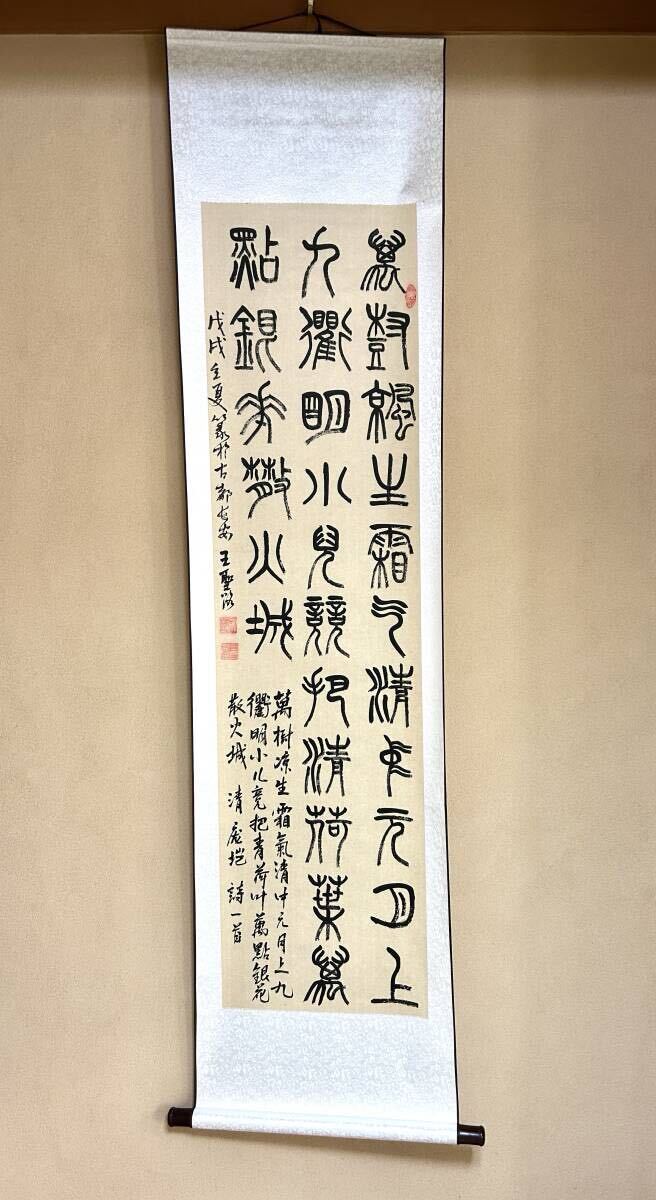 萬樹涼生霜气清中元月上
九衢明小兒競把清荷葉萬
點銀華散火城
戊戌之夏篆於古都长安 王聖
萬樹凉生霜氣清中元月上九
衢明小儿竞把青荷叶萬點銀花
散火城 清 庞垲 詩一首